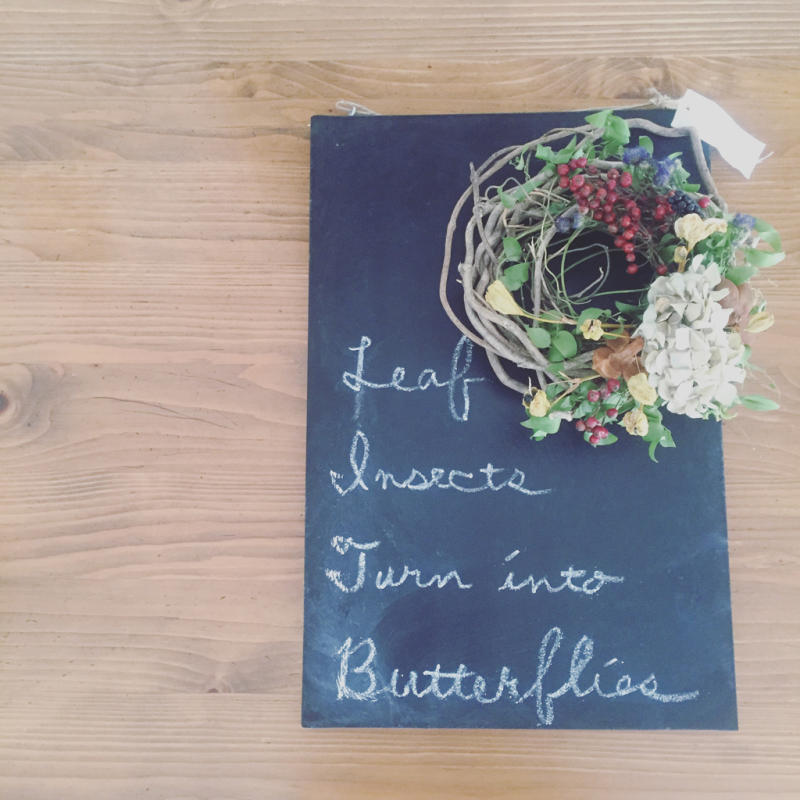 Leaf
Insects
Turn into
Butterflies